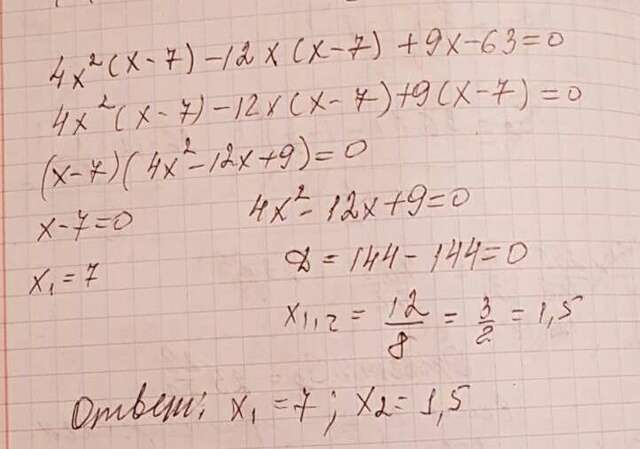 4x²(x-7)-12x(x-7)+9x-63=0
4x²(x-7)-12x(x-7)+9(x-7)=0
(x-7)(4x²-12x+9)=0
x-7=0
x₁=7
4x²-12x+9=0
D=144-144=0
x₁,₂ = 12/8 = 3/2 = 1,5
Ответ: x₁=7; x₂=1,5